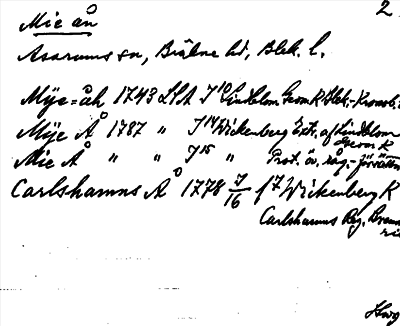 2
Mie ån
Asarums sn, Bräkne hd, Blek. l.
Mye=åh 1743 LSA J10 Lindblom Geom K Blek.-Kronob.
Mÿe Å 1787 " J14 Wickenberg Extr. af Lindblom
Geom K
Mie Å " " J15 " Prot. öv. råg.-förrättn
Carlshamns Å 1778 J/16 f7 Wickenberg K
Carlshamns Beg.